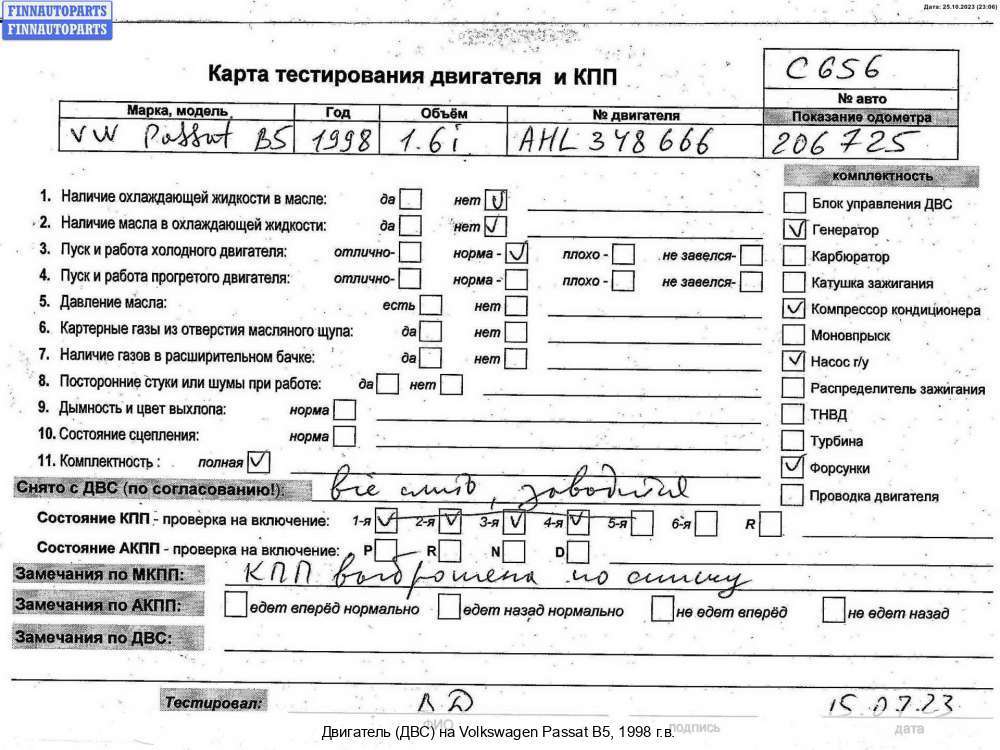 FINNAUTOPARTS
FINNAUTOPARTS
Дата: 25.10.2023 (23:06)
Карта тестирования двигателя и КПП
С 656
№ авто
Марка, модель Год Объём № двигателя Показание одометра
VW Passat B5 1998 1.6i AHL 348 666 206 725
комплектность
1. Наличие охлаждающей жидкости в масле: да нет
2. Наличие масла в охлаждающей жидкости: да нет
3. Пуск и работа холодного двигателя: отлично- норма - плохо - не завелся-
4. Пуск и работа прогретого двигателя: отлично- норма - плохо - не завелся-
5. Давление масла: есть нет
6. Картерные газы из отверстия масляного щупа: да нет
7. Наличие газов в расширительном бачке: да нет
8. Посторонние стуки или шумы при работе: да нет
9. Дымность и цвет выхлопа: норма
10. Состояние сцепления: норма
11. Комплектность : полная
Блок управления ДВС
Генератор
Карбюратор
Катушка зажигания
Компрессор кондиционера
Моновпрыск
Насос г/у
Распределитель зажигания
ТНВД
Турбина
Форсунки
Проводка двигателя
Снято с ДВС (по согласованию!): заводится
Состояние КПП - проверка на включение: 1-я 2-я 3-я 4-я 5-я 6-я R
Состояние АКПП - проверка на включение: P R N D
Замечания по МКПП: КПП выброшена по списку
Замечания по АКПП: едет вперёд нормально едет назад нормально не едет вперёд не едет назад
Замечания по ДВС:
Тестировал: 15.07.23
ФИО подпись дата
Двигатель (ДВС) на Volkswagen Passat B5, 1998 г.в.